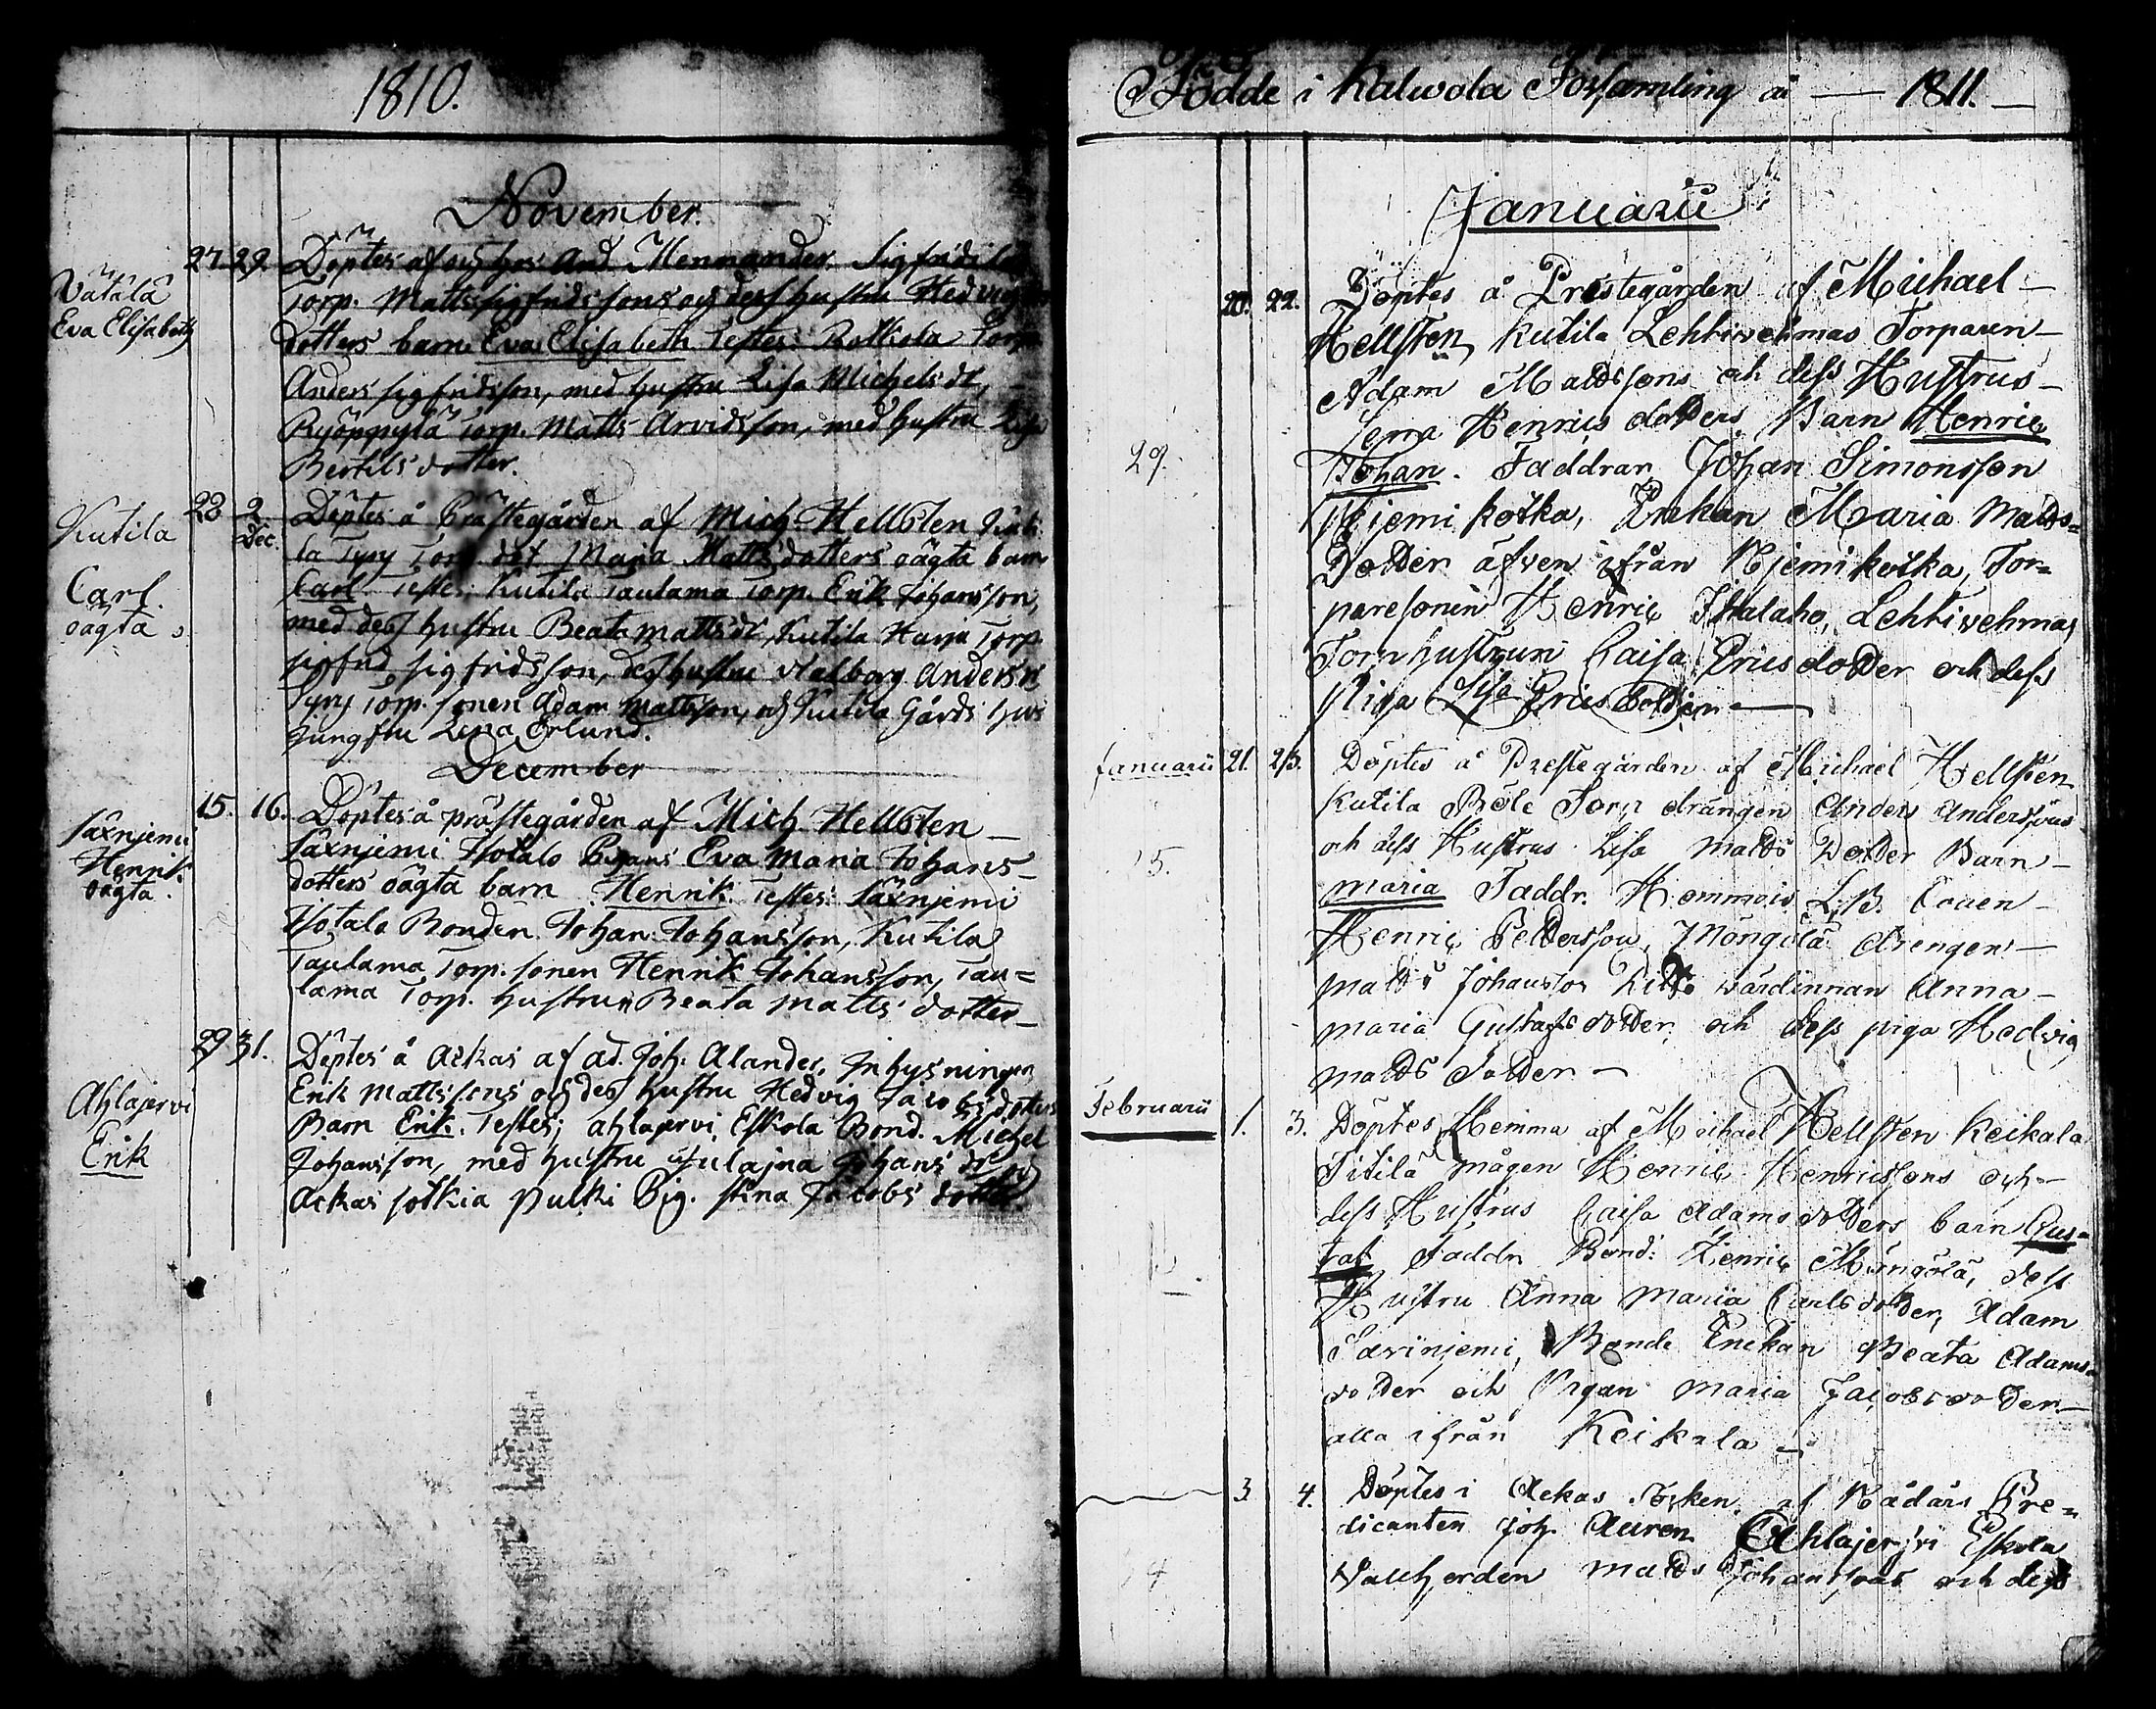 1810.
November.
Vätälä
Eva Elisabeth
27. 29. Döptes af och hos And Mennander. Sigfridila
Torp. Matts Sigfrids sons och dess hustru Hedvig
dotters barn Eva Elisabeth Testes: Rotkola Torp.
Anders Sigfridsson, med hustru Lisa Michels dr,
Ryöppylä Torp. Matts Arvidsson, med hustru Lisa
Bertils dotter.
Kutila
Carl
oägta
28 2 Dec. Döptes å Prästegården af Mich Hellsten Kuti-
la Tyry Torp. dot Maria Matts dotters oägta barn
Carl. Testes: Kutila Taulama Torp. Erik Johansson,
med dess hustru Beata Matts dr, Kutila Harju Torp
Sigfrid Sigfridsson, dess hustru Valborg Anders dr
Tyry Torp. sonen Adam Mattsson, och Kutila Gårds hus
jungfru Lena Erlund.
December
Saxnjemi
Henrik
oägta.
15. 16. Döptes å prästegården af Mich Hellsten
Saxnjemi Isotalo Pigans Eva Maria Johans-
dotters oägta barn Henrik. Testes: Saxnjemi
Isotalo Bonden Johan Johansson, Kutila
Taulama Torp. sonen Henrik Johansson, Tau-
lama Torp. hustrun Beata Matts dotter
Ahlajervi
Erik
29 31. Döptes å Ackas af ad. Joh. Alander, Inhysningen
Erik Mattssons och dess hustru Hedvig Jacobs dotters
Barn Erik. Testes; Ahlajervi Eskola Bond. Michel
Johansson, med hustru Juliana Johans dr och
Ackas Sotkia Pulki Pig. Stina Jacobs dotter.
Födde i Kalwola Församling år 1811.
Januarii
20. 22. Döptes å Prestegården af Michael
Hellsten, Kutila Lehtivehmas Torparen
Adam Mattssons och dess Hustrus
Lena Henrics dotters Barn Henric
Johan. Faddrar Johan Simonsson
Njemi kotka, Enkan Maria Matts-
Dotter äfven ifrån Njemikotka, Tor-
paresonen Henric Isталaho, Lehtivehmas
Torp hustrun Caisa Erics dotter och dess
Piga Lisa Erics dotter
29.
Januarii 21. 23. Döptes å Prestegården af Michael Hellsten
Kutila Böle Torp drängen Anders Anderssons
och dess Hustrus Lisa Matts Dotter Barn
Maria Faddr.
5.
Henric Pettersson, Möngölä drengen
Matts Johansson wärdinnan Anna
Maria Gustafs dotter och dess piga Hedvig
Matts dotter
Februarii 1. 3. Döptes Hemma af Michael Hellsten Keikala
Titilä mågen Henric Henricssons och
dess Hustrus Caisa Adams dotters barn Gus-
taf Faddr Bond: Henric Möngölä, dess
Hustru Anna Maria Carls dotter, Adam
Bonde Enckan Beata Adams-
dotter och Pigan Maria Jacobs dotter
alla ifrån Keikala
3 4. Döptes i Ackas Socken af Nådårs Pre-
dicanten Joh. Auren Ahlajerfvi Eskola
Wallherden Matts Johanssons och dess